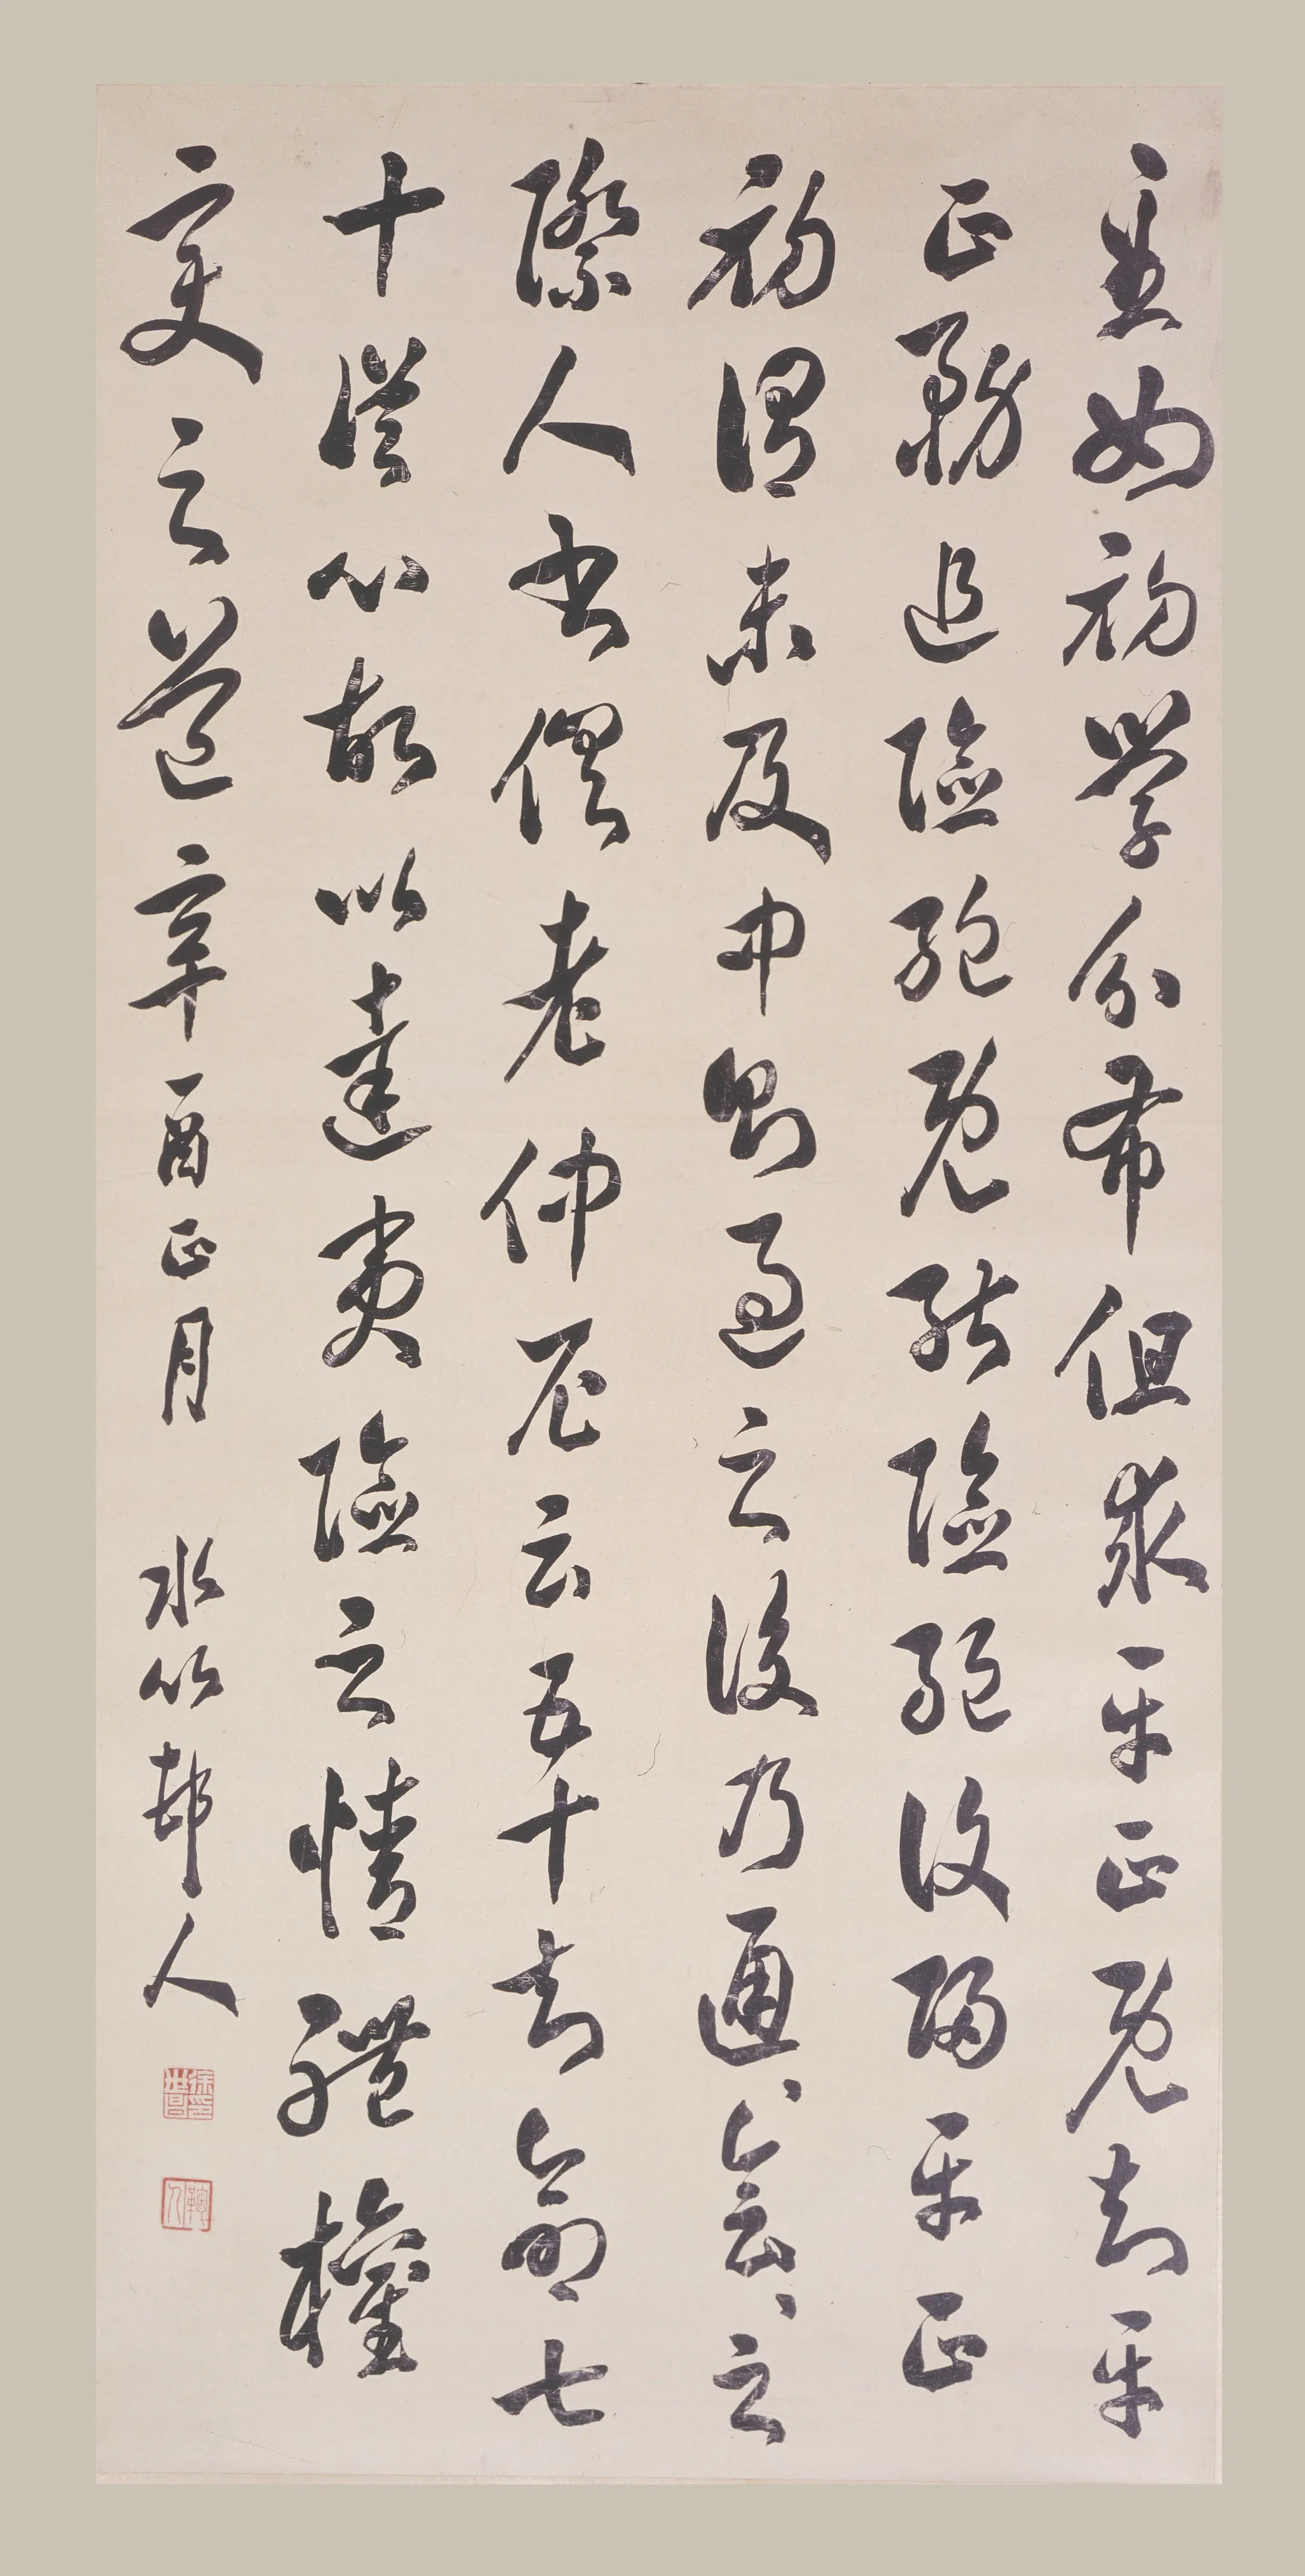 至如初學分布但求平正既知平
正務追險絕既能險絕復歸平正
初謂未及中則過之後乃通〻會〻之
際人書俱老仲尼云五十知命七
十從心故以達夷險之情體權
變之道辛酉正月 水竹邨人
徐世昌印
鞠人